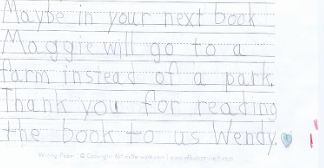 Maybe in your next book
Maggie will go to a
farm instead of a park.
Thank you for reading
the book to us Wendy.
Writing Paper